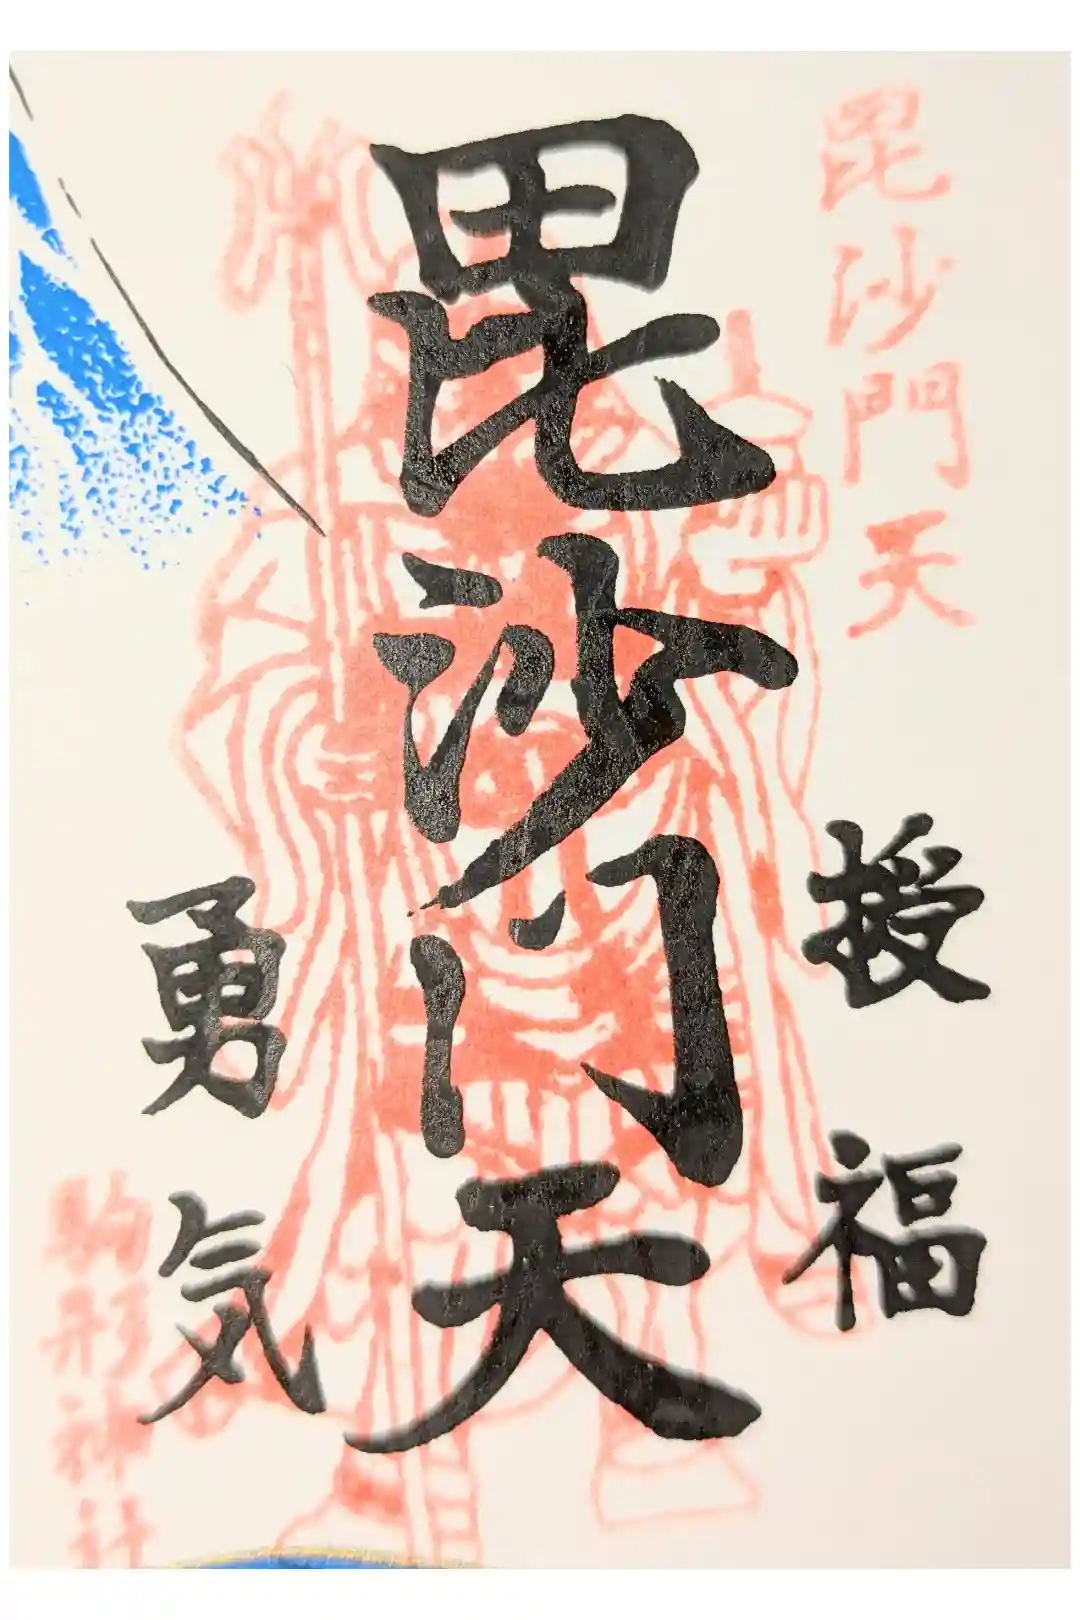 毘沙門天
授福
毘沙门天
勇気
駒形神社